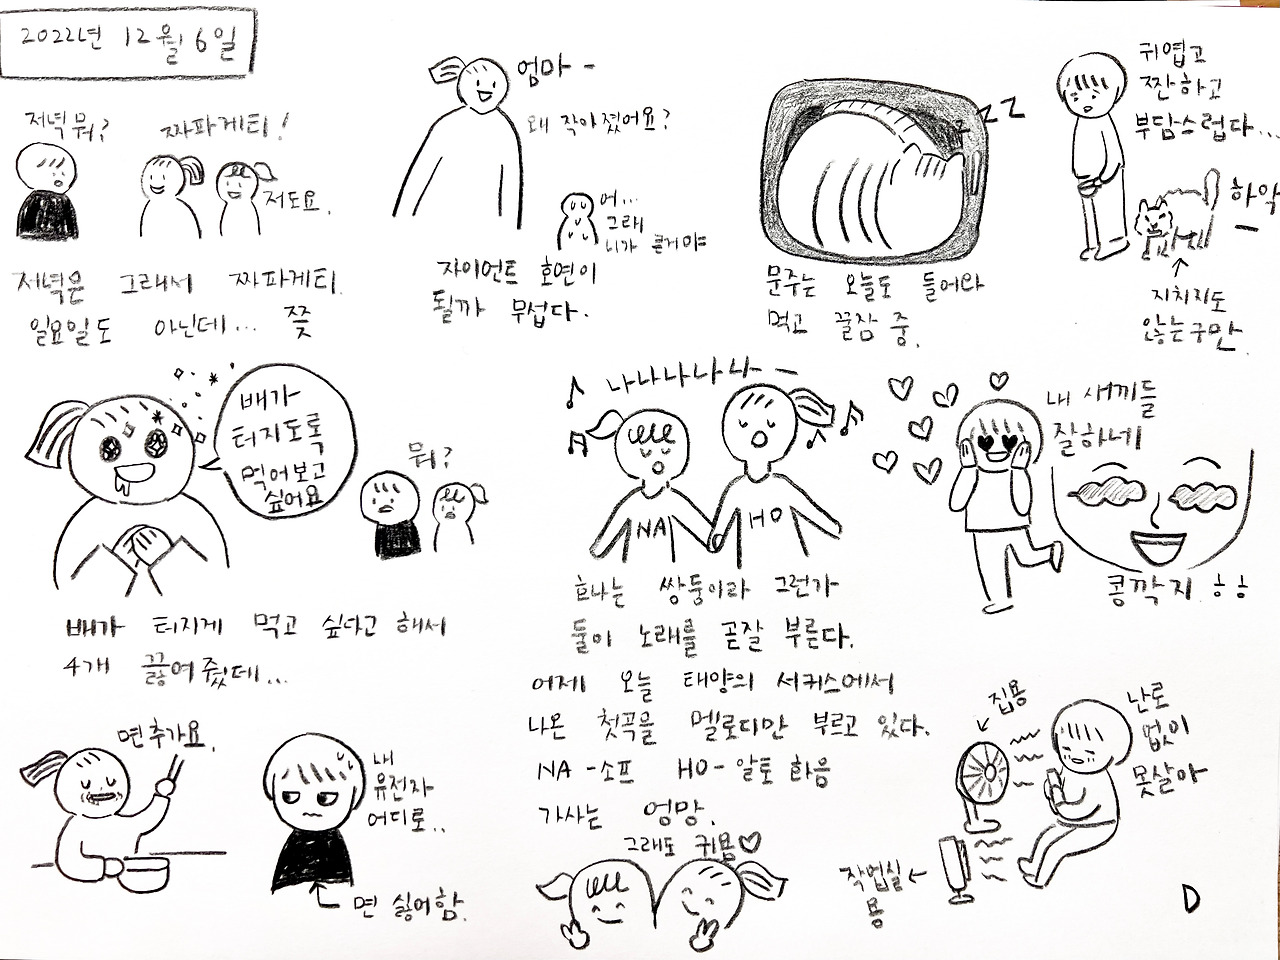 2022년 12월 6일
저녁 뭐?
짜파게티!
저도요.
저녁은 그래서 짜파게티.
일요일도 아닌데... 쯪
엄마 -
왜 작아졌어요?
어...
그래
니가 큰거야
자이언트 호연이
될까 무섭다.
zZZ
문주는 오늘도 들어와
먹고 꿀잠 중.
귀엽고
짠하고
부담스럽다...
하악
-
지치지도
않는구만.
배가
터지도록
먹어보고
싶어요
뭐?
배가 터지게 먹고 싶다고 해서
4개 끓여줬데...
면추가요.
내
유전자
어디로..
면 싫어함.
나나나나나 -
NA
HO
효나는 쌍둥이라 그런가
둘이 노래를 곧잘 부른다.
어제 오늘 태양의 서커스에서
나온 첫곡을 멜로디만 부르고 있다.
NA - 소프 HO - 알토 화음
가사는 엉망.
그래도 귀욤♡
내 새끼들
잘하네
콩깍지 ㅎㅎ
집용
난로
없이
못살아
작업실
용
D